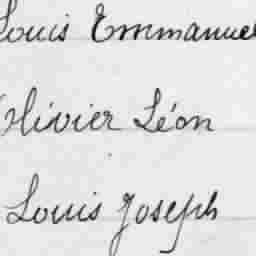 Louis Emmanuel
Olivier Léon
Louis Joseph